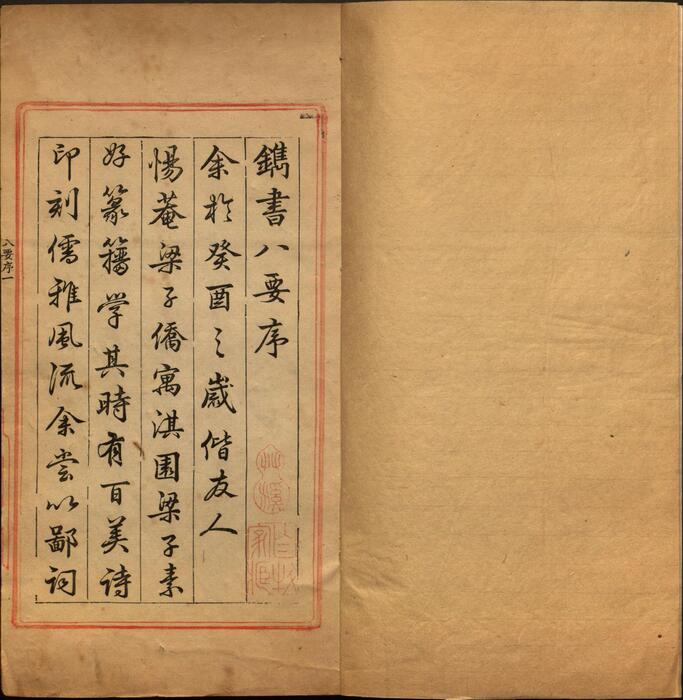 鐫書八要序
余於癸酉之歲偕友人
惕菴梁子僑寓淇園梁子素
好篆籀學其時有百美詩
印刻儒雅風流余嘗以鄙詞
八要序一